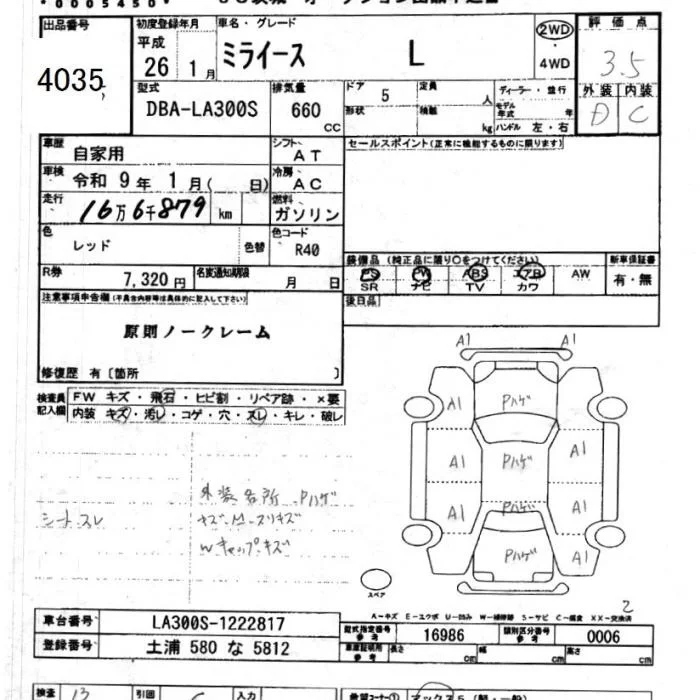 *0005450*
出品番号
4035
初度登録年月
平成
26 1月
車名・グレード
ミライース L
2WD
・
4WD
評価点
3.5
型式
DBA-LA300S
排気量
660
CC
ドア 5
形状
定員 人
積載 kg
ディーラー・並行
モデル年式 年
ハンドル 左・右
外装 内装
D C
車歴
自家用
シフト
AT
セールスポイント(正常に機能するものに限ります)
車検
令和 9年 1月( 日)
冷房
AC
走行
16万6千879 km
燃料
ガソリン
色
レッド
色替
色コード
R40
装備品 (純正品に限り○をつけてください)
新車保証書
PS PW ABS エアB AW
SR ナビ TV カワ
有・無
R券
7,320円
名変通知期限
月 日
後日品
注意事項申告欄(不具合内容等は具体的に記入して下さい)
原則ノークレーム
修復歴 有〔箇所 〕
検査員
記入欄
FW キズ・飛石・ヒビ割・リペア跡・×要
内装 キズ・汚レ・コゲ・穴・スレ・キレ・破レ
A1 A1
A1 Pハゲ A1
A1 Pハゲ A1
A1 Pハゲ A1
Pハゲ A1
外装各所 Pハゲ
シートスレ
Wキャップキズ
スペア
2
車台番号
LA300S-1222817
型式指定番号
参考
16986
類別区分番号
参考
0006
登録番号
土浦 580 な 5812
車庫証明用
参考
長さ cm
幅 cm
高さ cm
検査 13
引回
入力